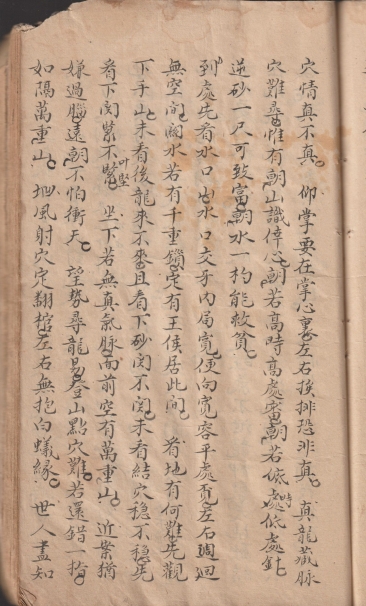 穴情真不真 仰掌要在掌心裏左右挨排恐非真 真龍藏脉
穴難尋惟有朝山識倖心朝若高時高處畓朝若依時處低處針
逆砂一尺可致富朝水一杓能救貧
到處先看水口山水口交牙内局寬便向寬容平處覓左右週迴
無空间水若有千重鎖定有王侯居此间 看地有何難先觀
下手山未看後龍來不來且看下砂関不関未看結穴穩不穩先
看下関緊不緊叶堅 坐下若無真氣脉面前空有萬重山 近案猶
嫌過腦遠朝不怕衝天 望勢尋龍易登山點穴難若還錯一指
如隔萬重山 地風射穴定翻棺左右無抱白蟻緣 世人盡知